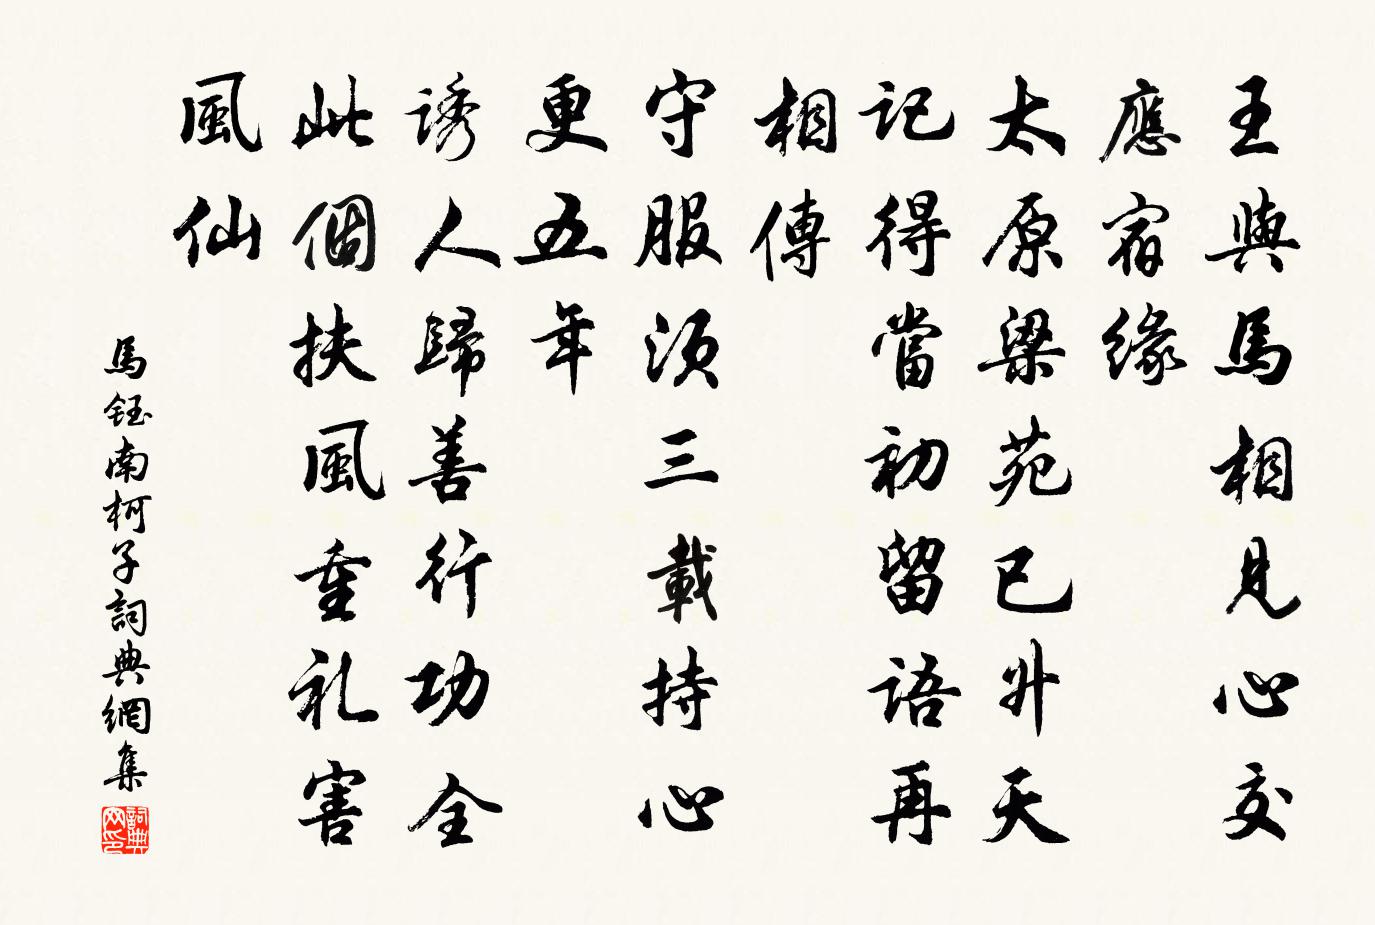 王與馬相見心交
應宿緣
太原梁苑已升天
記得當初留語再
相傳
守服須三載持心
更五年
誘人歸善行功全
此個扶風重礼害
風仙
馬鈺南柯子詞典網集
詞典網印